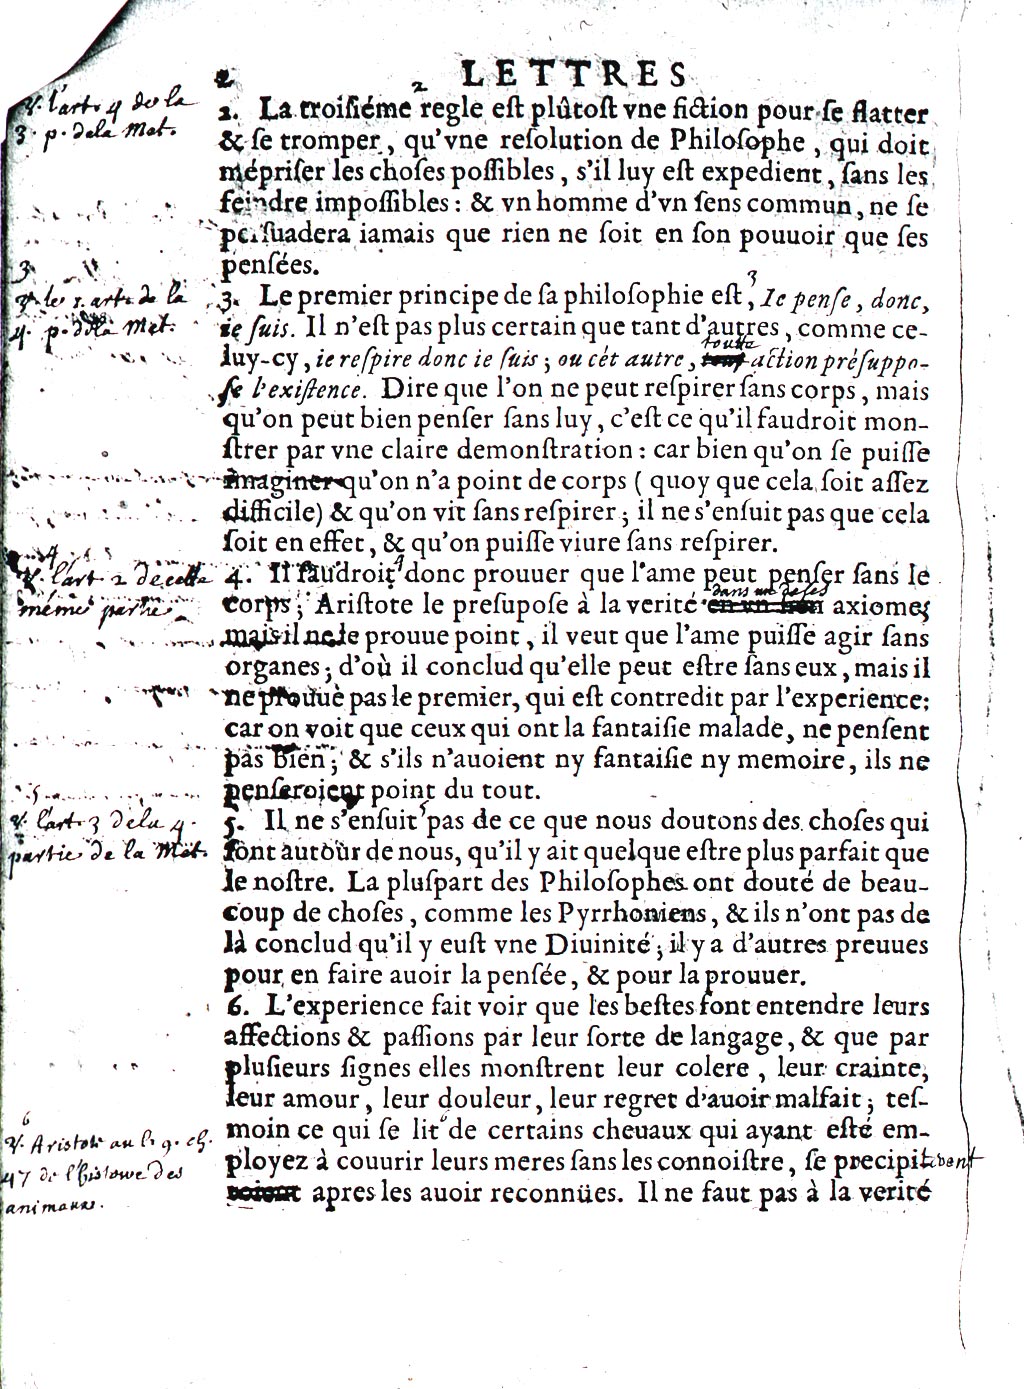 2 LETTRES
2
v. l'art. 4 de la
3. p. de la Met.
2. La troisiéme regle est plûtost vne fiction pour se flatter
& se tromper, qu'vne resolution de Philosophe, qui doit
mépriser les choses possibles, s'il luy est expedient, sans les
feindre impossibles: & vn homme d'vn sens commun, ne se
persuadera iamais que rien ne soit en son pouuoir que ses
pensées.
3
v. le 1. art. de la
4. p. de la Met.
3
3. Le premier principe de sa philosophie est, Ie pense, donc,
ie suis. Il n'est pas plus certain que tant d'autres, comme ce-
toutte
luy-cy, ie respire donc ie suis; ou cét autre, tout action présuppo-
se l'existence. Dire que l'on ne peut respirer sans corps, mais
qu'on peut bien penser sans luy, c'est ce qu'il faudroit mon-
strer par vne claire demonstration: car bien qu'on se puisse
imaginer qu'on n'a point de corps (quoy que cela soit assez
difficile) & qu'on vit sans respirer; il ne s'ensuit pas que cela
soit en effet, & qu'on puisse viure sans respirer.
4
v. l'art 2 de cette
méme partie
4
4. Il faudroit donc prouuer que l'ame peut penser sans le
dans un de ses
corps; Aristote le presupose à la verité en vn axiomes
mais il ne le prouue point, il veut que l'ame puisse agir sans
organes; d'où il conclud qu'elle peut estre sans eux, mais il
ne prouuè pas le premier, qui est contredit par l'experience:
car on voit que ceux qui ont la fantaisie malade, ne pensent
pas bien; & s'ils n'auoient ny fantaisie ny memoire, ils ne
penseroient point du tout.
5
v. l'art 3 de la 4.
partie de la Mét.
5
5. Il ne s'ensuit pas de ce que nous doutons des choses qui
sont autour de nous, qu'il y ait quelque estre plus parfait que
le nostre. La pluspart des Philosophes ont douté de beau-
coup de choses, comme les Pyrrhoniens, & ils n'ont pas de
là conclud qu'il y eust vne Diuinité; il y a d'autres preuues
pour en faire auoir la pensée, & pour la prouuer.
6. L'experience fait voir que les bestes font entendre leurs
affections & passions par leur sorte de langage, & que par
plusieurs signes elles monstrent leur colere, leur crainte,
leur amour, leur douleur, leur regret d'auoir malfait; tes-
6
v. Aristote au li. 9. ch.
47 de l'histoire des
animaux.
6
moin ce qui se lit de certains cheuaux qui ayant esté em-
ployez à couurir leurs meres sans les connoistre, se precipiterent
apres les auoir reconnües. Il ne faut pas à la verité